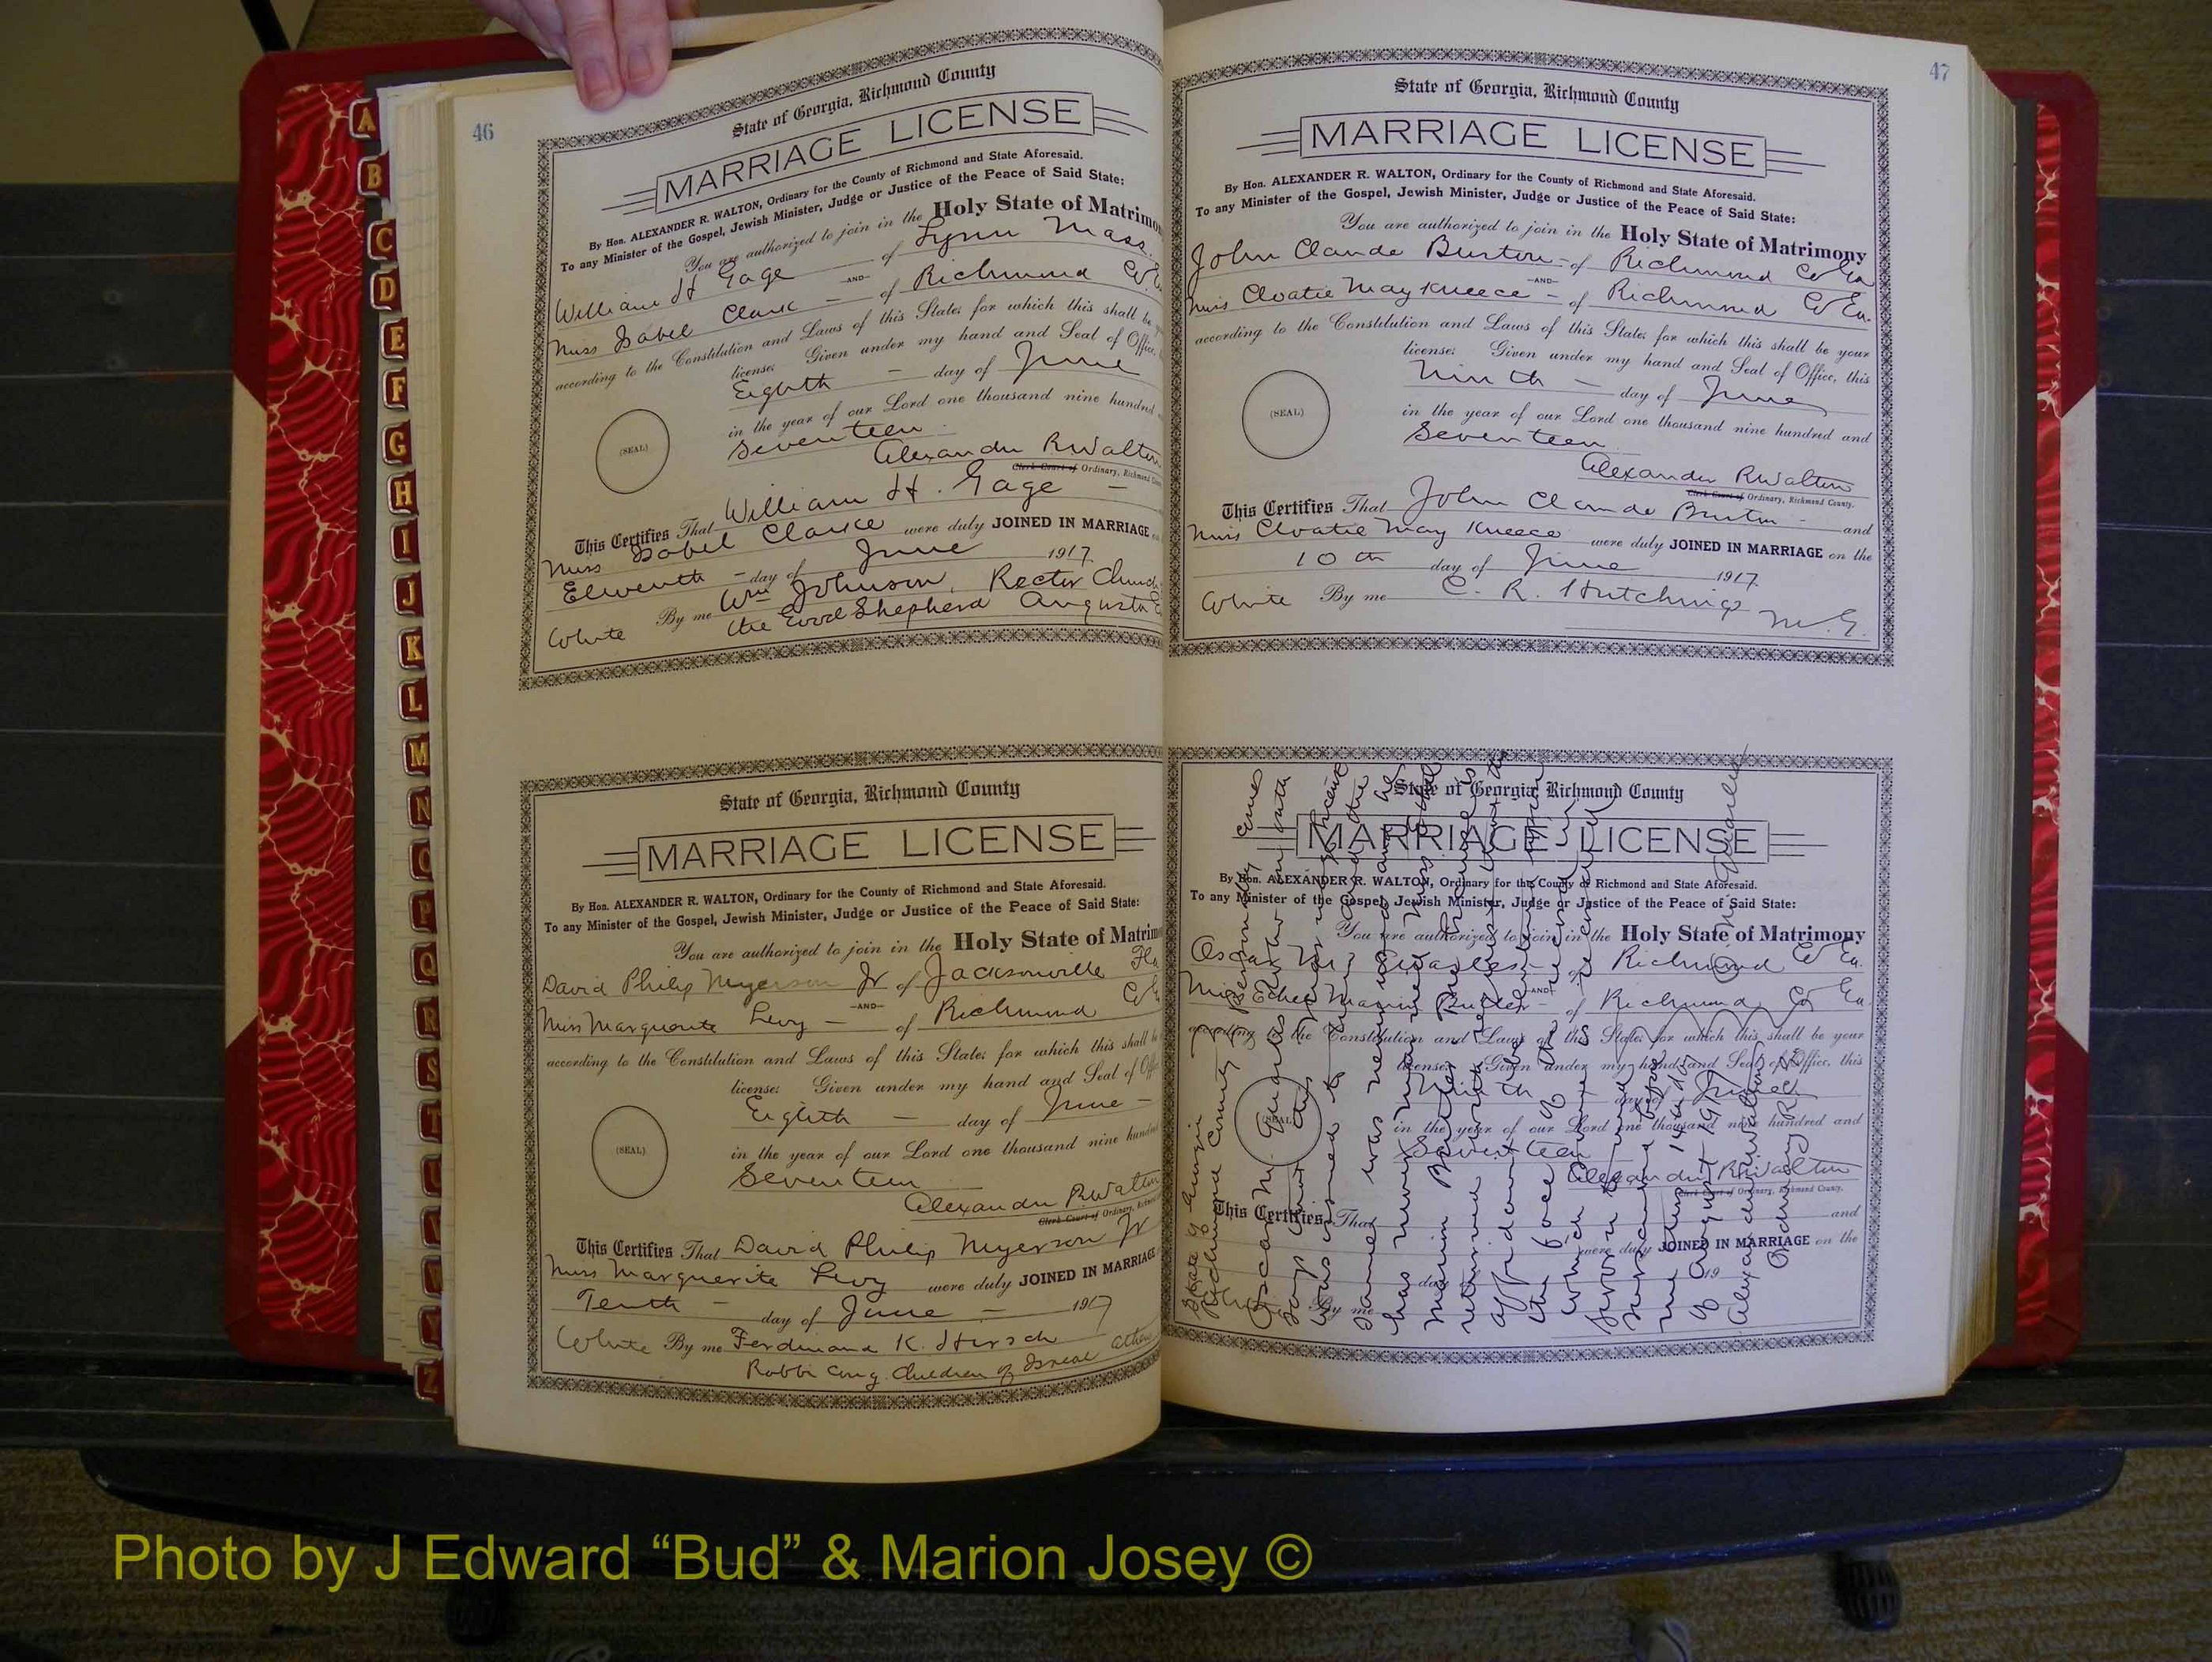 46
State of Georgia, Richmond County
MARRIAGE LICENSE
By Hon. ALEXANDER R. WALTON, Ordinary for the County of Richmond and State Aforesaid.
To any Minister of the Gospel, Jewish Minister, Judge or Justice of the Peace of Said State:
You are authorized to join in the Holy State of Matrimo
William H Gage of Lynn Mass.
—AND—
Miss Isabel Clark — of Richmond Co.
according to the Constitution and Laws of this State; for which this shall be
license: Given under my hand and Seal of Office,
Eighth — day of June
in the year of our Lord one thousand nine hundred
Seventeen
(SEAL)
Alexander R Walton
Clerk Court of Ordinary, Richmond
This Certifies That William H. Gage —
Miss Isabel Clarke were duly JOINED IN MARRIAGE
Eleventh — day of June 1917.
By me Wm Johnson, Rector Church
White the Good Shepherd Augusta
State of Georgia, Richmond County
MARRIAGE LICENSE
By Hon. ALEXANDER R. WALTON, Ordinary for the County of Richmond and State Aforesaid.
To any Minister of the Gospel, Jewish Minister, Judge or Justice of the Peace of Said State:
You are authorized to join in the Holy State of Matrim
David Philip Meyerson Jr of Jacksonville Fla
—AND—
Miss Marguerite Levy — of Richmond
according to the Constitution and Laws of this State; for which this shall
license: Given under my hand and Seal of
Eighth — day of June —
in the year of our Lord one thousand nine hundred
Seventeen
(SEAL)
Alexander R. Walton
Clerk Court of Ordinary,
This Certifies That David Philip Meyerson Jr
Miss Marguerite Levy were duly JOINED IN MARRIAGE
Tenth — day of June — 1917
White By me Ferdinand K. Hirsch
Rabbi Cong. Children of Israel
47
State of Georgia, Richmond County
MARRIAGE LICENSE
By Hon. ALEXANDER R. WALTON, Ordinary for the County of Richmond and State Aforesaid.
To any Minister of the Gospel, Jewish Minister, Judge or Justice of the Peace of Said State:
You are authorized to join in the Holy State of Matrimony
John Claude Burton — of Richmond Co Ga
—AND—
Miss Cloatie May Kneece — of Richmond Co Ga.
according to the Constitution and Laws of this State; for which this shall be your
license: Given under my hand and Seal of Office, this
Ninth — day of June
in the year of our Lord one thousand nine hundred and
Seventeen
(SEAL)
Alexander R Walton
Clerk Court of Ordinary, Richmond County.
This Certifies That John Claude Burton — and
Miss Cloatie May Kneece were duly JOINED IN MARRIAGE on the
10th day of June 1917.
White By me C. R. Hutchings
M.G.
State of Georgia, Richmond County
MARRIAGE LICENSE
By Hon. ALEXANDER R. WALTON, Ordinary for the County of Richmond and State Aforesaid.
To any Minister of the Gospel, Jewish Minister, Judge or Justice of the Peace of Said State:
You are authorized to join in the Holy State of Matrimony
Oscar M. of Richmond Co Ga.
—AND—
Miss of Richmond Co Ga
according to the Constitution and Laws of this State; for which this shall be your
license: Given under my hand and Seal of Office, this
Ninth day of
in the year of our Lord one thousand nine hundred and
Seventeen
(SEAL)
Alexander R Walton
Clerk Court of Ordinary, Richmond County.
This Certifies That and
were duly JOINED IN MARRIAGE on the
day 19
By me
State of Georgia
Richmond County personally came
Oscar M.
says that
was issued to
same was never used and he
has never married Miss
returned
the face of this
which
sworn
subscribed before
me this 14th day
of August 1917
Alexander R Walton
Ordinary R.C.
Photo by J Edward “Bud” & Marion Josey ©
A
B
C
D
E
F
G
H
I
J
K
L
M
N
O
P
Q
R
S
T
U
V
W
Y
Z